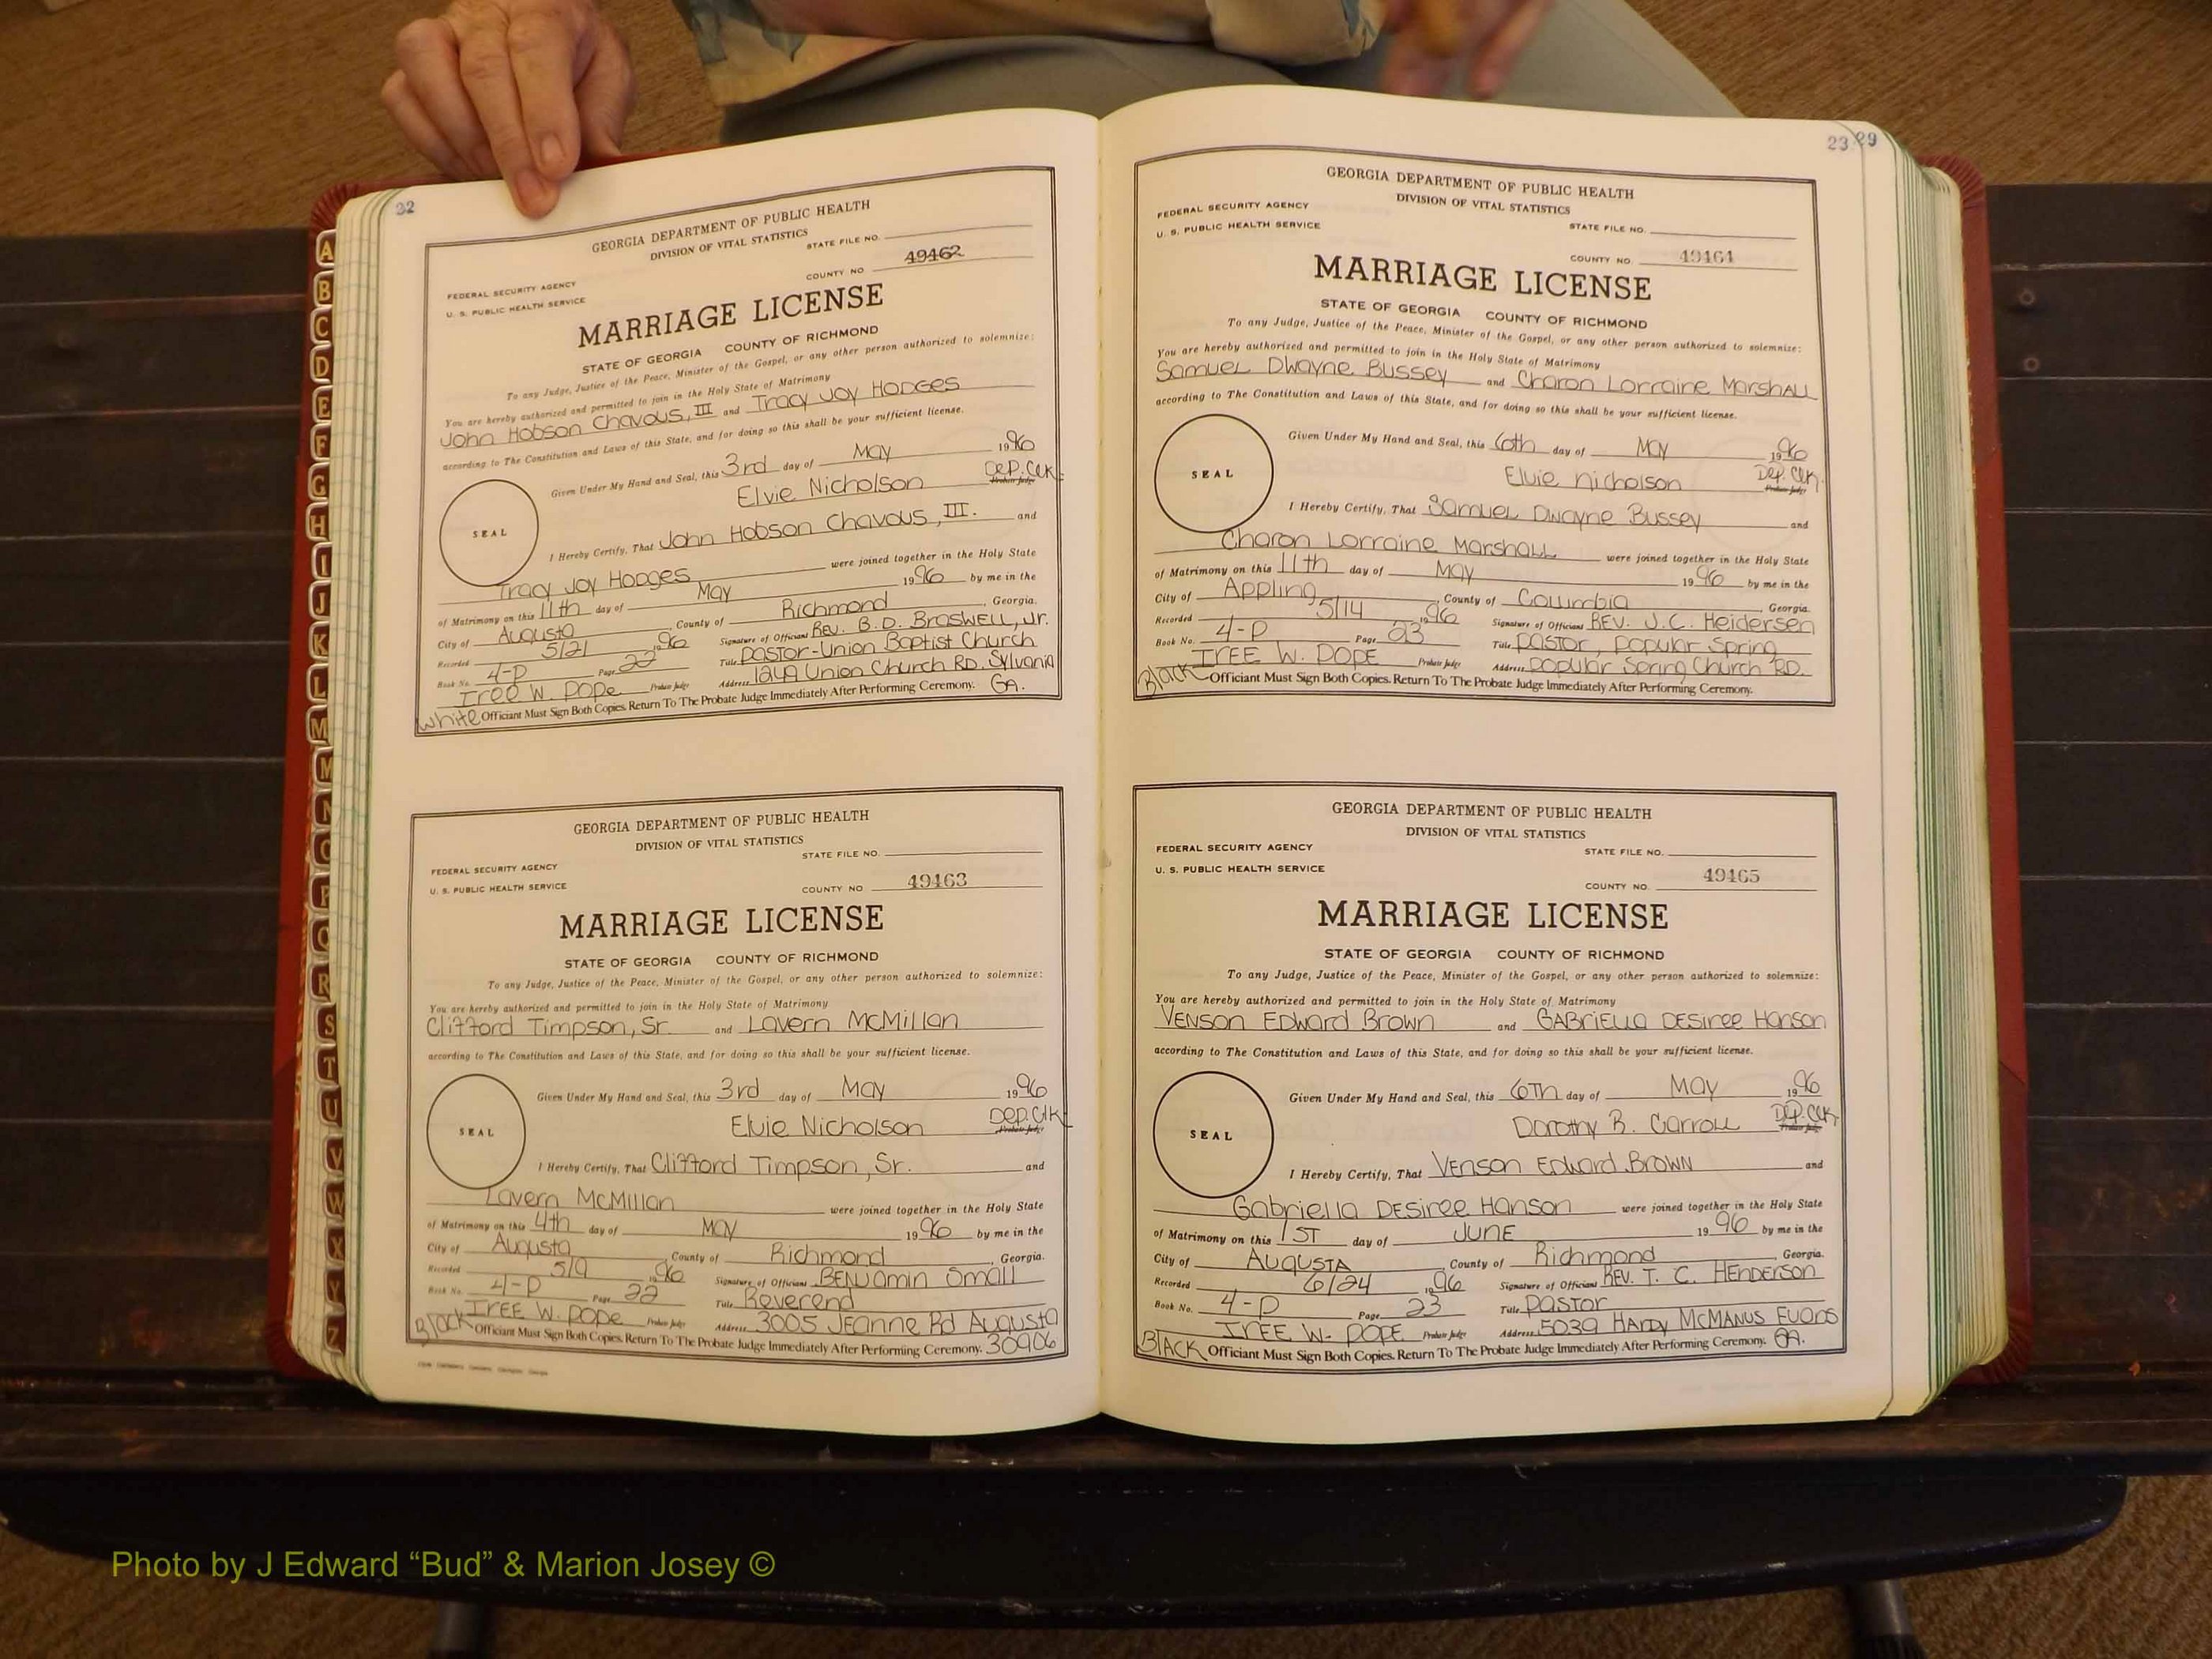 22
GEORGIA DEPARTMENT OF PUBLIC HEALTH
DIVISION OF VITAL STATISTICS
STATE FILE NO.
FEDERAL SECURITY AGENCY
U. S. PUBLIC HEALTH SERVICE
COUNTY NO 49462
MARRIAGE LICENSE
STATE OF GEORGIA COUNTY OF RICHMOND
To any Judge, Justice of the Peace, Minister of the Gospel, or any other person authorized to solemnize:
You are hereby authorized and permitted to join in the Holy State of Matrimony
John Hobson Chavous, III and Tracy Joy Hodges
according to The Constitution and Laws of this State, and for doing so this shall be your sufficient license.
Given Under My Hand and Seal, this 3rd day of May 1996
Elvie Nicholson Dep. Clk
Probate Judge
SEAL
I Hereby Certify, That John Hobson Chavous, III. and
Tracy Joy Hodges were joined together in the Holy State
of Matrimony on this 11th day of May 1996 by me in the
City of Augusta, County of Richmond, Georgia.
Recorded 5/21 1996 Signature of Officiant Rev. B.D. Braswell, Jr.
Book No. 4-P Page 22 Title Pastor-Union Baptist Church
Iree W. Pope Probate Judge Address 1249 Union Church Rd. Sylvania
White Officiant Must Sign Both Copies. Return To The Probate Judge Immediately After Performing Ceremony. GA.
GEORGIA DEPARTMENT OF PUBLIC HEALTH
DIVISION OF VITAL STATISTICS
STATE FILE NO.
FEDERAL SECURITY AGENCY
U. S. PUBLIC HEALTH SERVICE
COUNTY NO 49463
MARRIAGE LICENSE
STATE OF GEORGIA COUNTY OF RICHMOND
To any Judge, Justice of the Peace, Minister of the Gospel, or any other person authorized to solemnize:
You are hereby authorized and permitted to join in the Holy State of Matrimony
Clifford Timpson, Sr. and Lavern McMillan
according to The Constitution and Laws of this State, and for doing so this shall be your sufficient license.
Given Under My Hand and Seal, this 3rd day of May 1996
Elvie Nicholson Dep. Clk
Probate Judge
SEAL
I Hereby Certify, That Clifford Timpson, Sr. and
Lavern McMillan were joined together in the Holy State
of Matrimony on this 4th day of May 1996 by me in the
City of Augusta, County of Richmond, Georgia.
Recorded 5/9 1996 Signature of Officiant Benjamin Small
Book No. 4-P Page 22 Title Reverend
IREE W. Pope Probate Judge Address 3005 Jeanne Rd Augusta
Black Officiant Must Sign Both Copies. Return To The Probate Judge Immediately After Performing Ceremony. 30906
23 29
GEORGIA DEPARTMENT OF PUBLIC HEALTH
DIVISION OF VITAL STATISTICS
FEDERAL SECURITY AGENCY
U. S. PUBLIC HEALTH SERVICE
STATE FILE NO.
COUNTY NO. 49464
MARRIAGE LICENSE
STATE OF GEORGIA COUNTY OF RICHMOND
To any Judge, Justice of the Peace, Minister of the Gospel, or any other person authorized to solemnize:
You are hereby authorized and permitted to join in the Holy State of Matrimony
Samuel Dwayne Bussey and Charon Lorraine Marshall
according to The Constitution and Laws of this State, and for doing so this shall be your sufficient license.
Given Under My Hand and Seal, this 6th day of May 1996
Elvie Nicholson Dep. Clk.
Probate Judge
SEAL
I Hereby Certify, That Samuel Dwayne Bussey and
Charon Lorraine Marshall were joined together in the Holy State
of Matrimony on this 11th day of May 1996 by me in the
City of Appling, County of Columbia, Georgia.
Recorded 5/14 1996 Signature of Officiant Rev. J.C. Heidersen
Book No. 4-P Page 23 Title Pastor, Popular Spring
IREE W. POPE Probate Judge Address Popular Spring Church RD.
Black Officiant Must Sign Both Copies. Return To The Probate Judge Immediately After Performing Ceremony.
GEORGIA DEPARTMENT OF PUBLIC HEALTH
DIVISION OF VITAL STATISTICS
FEDERAL SECURITY AGENCY
STATE FILE NO.
U. S. PUBLIC HEALTH SERVICE
COUNTY NO. 49465
MARRIAGE LICENSE
STATE OF GEORGIA COUNTY OF RICHMOND
To any Judge, Justice of the Peace, Minister of the Gospel, or any other person authorized to solemnize:
You are hereby authorized and permitted to join in the Holy State of Matrimony
Venson Edward Brown and Gabriella Desiree Hanson
according to The Constitution and Laws of this State, and for doing so this shall be your sufficient license.
Given Under My Hand and Seal, this 6TH day of May 1996
Dorothy R. Carroll Dep. Clk
Probate Judge
SEAL
I Hereby Certify, That Venson Edward Brown and
Gabriella Desiree Hanson were joined together in the Holy State
of Matrimony on this 1ST day of JUNE 1996 by me in the
City of AUGUSTA, County of Richmond, Georgia.
Recorded 6/24 1996 Signature of Officiant Rev. T. C. Henderson
Book No. 4-P Page 23 Title Pastor
IREE W. POPE Probate Judge Address 5039 Hardy McManus Evans
BLACK Officiant Must Sign Both Copies. Return To The Probate Judge Immediately After Performing Ceremony. GA.
A
B
C
D
E
F
G
H
I
J
K
L
M
M
N
O
P
Q
R
S
T
U
V
W
X
Y
Z
Photo by J Edward “Bud” & Marion Josey ©